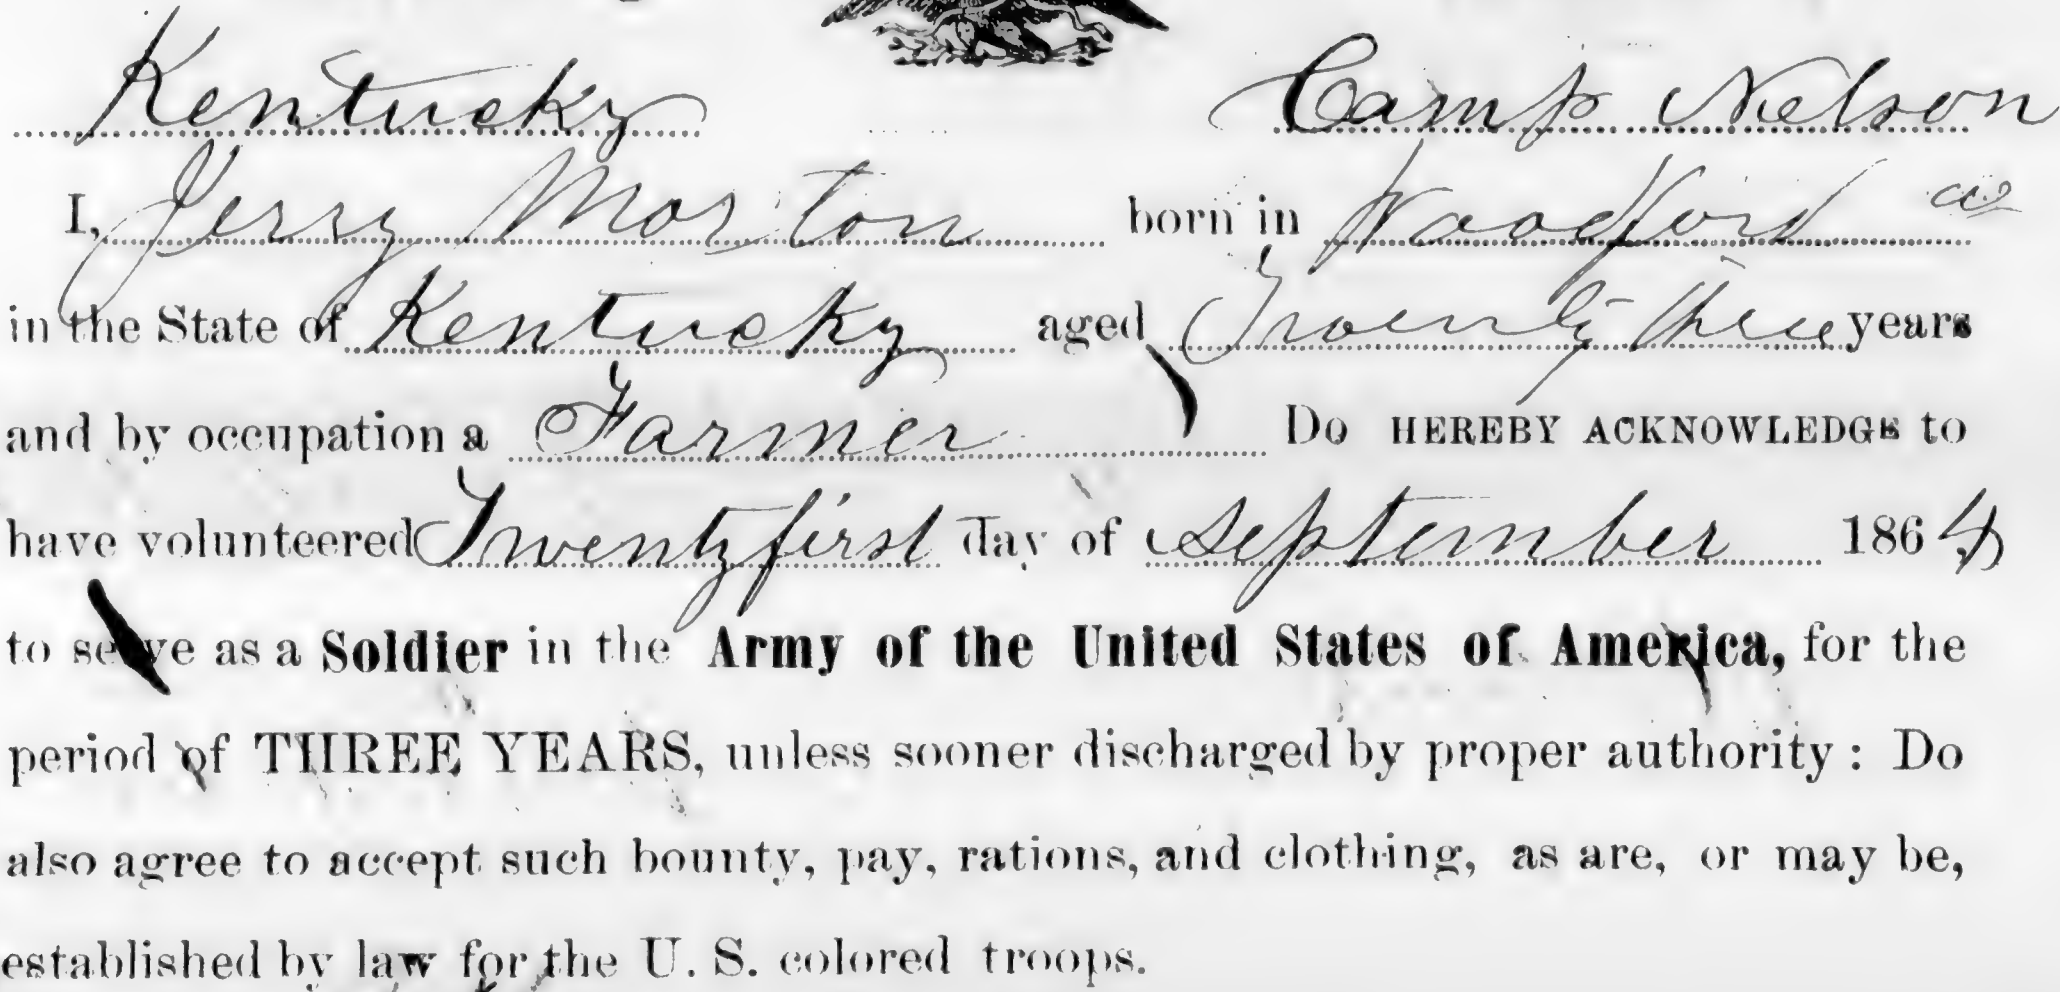 Kentucky Camp Nelson
I, Jerry Morton born in Woodford co
in the State of Kentucky aged Twenty three years
and by occupation a Farmer Do HEREBY ACKNOWLEDGE to
have volunteered Twenty first day of September 1864
to serve as a Soldier in the Army of the United States of America, for the
period of THREE YEARS, unless sooner discharged by proper authority: Do
also agree to accept such bounty, pay, rations, and clothing, as are, or may be,
established by law for the U. S. colored troops.